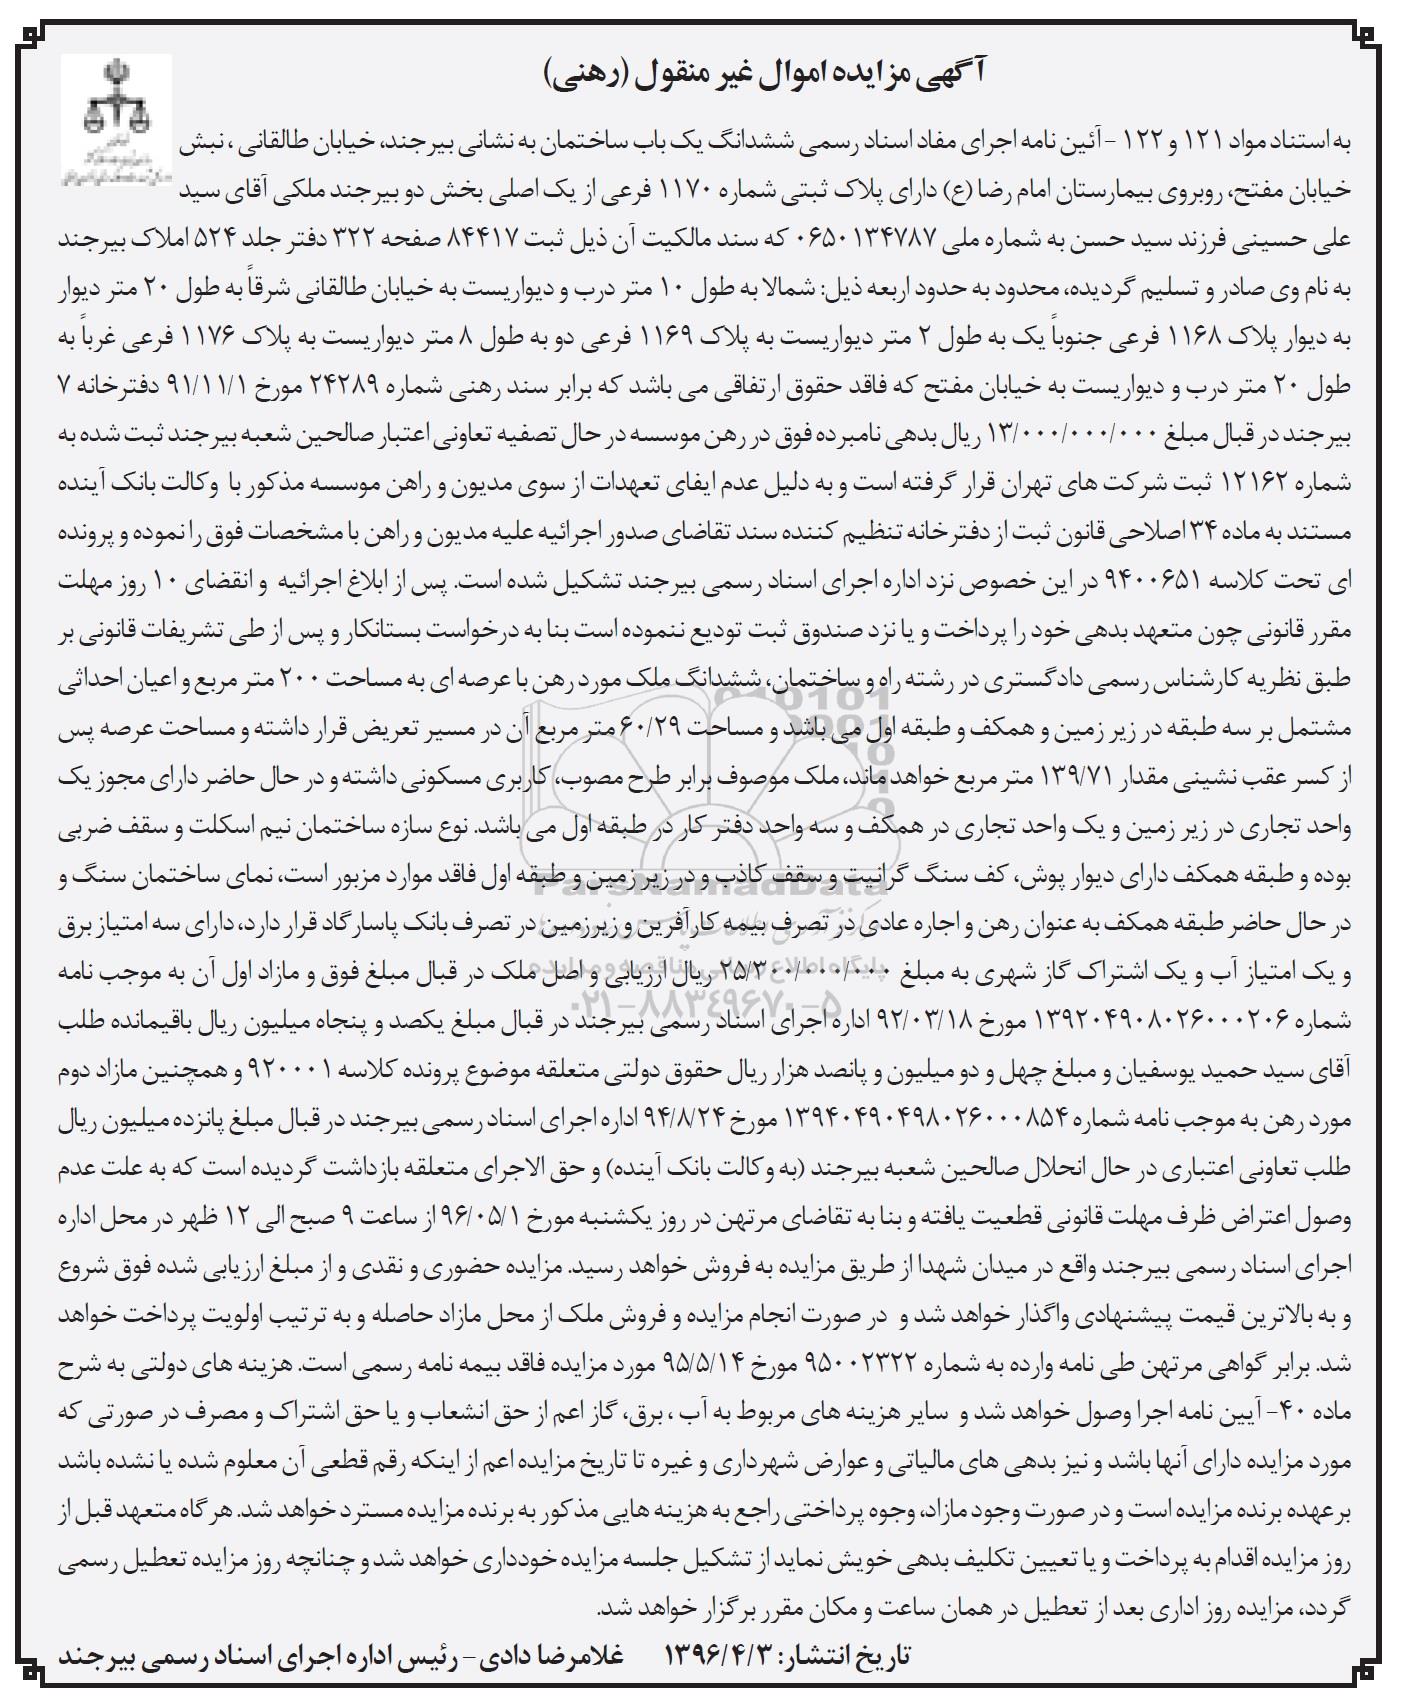 آگهی مزایده اموال غیر منقول (رهنی)
به استناد مواد ۱۲۱ و ۱۲۲ - آئین نامه اجرای مفاد اسناد رسمی ششدانگ یک باب ساختمان به نشانی بیرجند، خیابان طالقانی ، نبش
خیابان مفتح، روبروی بیمارستان امام رضا (ع) دارای پلاک ثبتی شماره ۱۱۷۰ فرعی از یک اصلی بخش دو بیرجند ملکی آقای سید
علی حسینی فرزند سید حسن به شماره ملی ۰۶۵۰۱۳۴۷۸۷ که سند مالکیت آن ذیل ثبت ۸۴۴۱۷ صفحه ۳۲۲ دفتر جلد ۵۲۴ املاک بیرجند
به نام وی صادر و تسلیم گردیده، محدود به حدود اربعه ذیل: شمالا به طول ۱۰ متر درب و دیواریست به خیابان طالقانی شرقاً به طول ۲۰ متر دیوار
به دیوار پلاک ۱۱۶۸ فرعی جنوباً یک به طول ۲ متر دیواریست به پلاک ۱۱۶۹ فرعی دو به طول ۸ متر دیواریست به پلاک ۱۱۷۶ فرعی غرباً به
طول ۲۰ متر درب و دیواریست به خیابان مفتح که فاقد حقوق ارتفاقی می باشد که برابر سند رهنی شماره ۲۴۲۸۹ مورخ ۹۱/۱۱/۱ دفترخانه ۷
بیرجند در قبال مبلغ ۱۳/۰۰۰/۰۰۰/۰۰۰ ریال بدهی نامبرده فوق در رهن موسسه در حال تصفیه تعاونی اعتبار صالحین شعبه بیرجند ثبت شده به
شماره ۱۲۱۶۲ ثبت شرکت های تهران قرار گرفته است و به دلیل عدم ایفای تعهدات از سوی مدیون و راهن موسسه مذکور با وکالت بانک آینده
مستند به ماده ۳۴ اصلاحی قانون ثبت از دفترخانه تنظیم کننده سند تقاضای صدور اجرائیه علیه مدیون و راهن با مشخصات فوق را نموده و پرونده
ای تحت کلاسه ۹۴۰۰۶۵۱ در این خصوص نزد اداره اجرای اسناد رسمی بیرجند تشکیل شده است. پس از ابلاغ اجرائیه و انقضای ۱۰ روز مهلت
مقرر قانونی چون متعهد بدهی خود را پرداخت و یا نزد صندوق ثبت تودیع ننموده است بنا به درخواست بستانکار و پس از طی تشریفات قانونی بر
طبق نظریه کارشناس رسمی دادگستری در رشته راه و ساختمان، ششدانگ ملک مورد رهن با عرصه ای به مساحت ۲۰۰ متر مربع و اعیان احداثی
مشتمل بر سه طبقه در زیر زمین و همکف و طبقه اول می باشد و مساحت ۶۰/۲۹ متر مربع آن در مسیر تعریض قرار داشته و مساحت عرصه پس
از کسر عقب نشینی مقدار ۱۳۹/۷۱ متر مربع خواهد ماند، ملک موصوف برابر طرح مصوب، کاربری مسکونی داشته و در حال حاضر دارای مجوز یک
واحد تجاری در زیر زمین و یک واحد تجاری در همکف و سه واحد دفتر کار در طبقه اول می باشد. نوع سازه ساختمان نیم اسکلت و سقف ضربی
بوده و طبقه همکف دارای دیوار پوش، کف سنگ گرانیت و سقف کاذب و در زیر زمین و طبقه اول فاقد موارد مزبور است، نمای ساختمان سنگ و
در حال حاضر طبقه همکف به عنوان رهن و اجاره عادی در تصرف بیمه کارآفرین و زیرزمین در تصرف بانک پاسارگاد قرار دارد، دارای سه امتیاز برق
و یک امتیاز آب و یک اشتراک گاز شهری به مبلغ ۲۵/۳۰۰/۰۰۰/۰۰۰ ریال ارزیابی و اصل ملک در قبال مبلغ فوق و مازاد اول آن به موجب نامه
شماره ۱۳۹۲۰۴۹۰۸۰۲۶۰۰۰۲۰۶ مورخ ۹۲/۰۳/۱۸ اداره اجرای اسناد رسمی بیرجند در قبال مبلغ یکصد و پنجاه میلیون ریال باقیمانده طلب
آقای سید حمید یوسفیان و مبلغ چهل و دو میلیون و پانصد هزار ریال حقوق دولتی متعلقه موضوع پرونده کلاسه ۹۲۰۰۰۱ و همچنین مازاد دوم
مورد رهن به موجب نامه شماره ۱۳۹۴۰۴۹۰۴۹۸۰۲۶۰۰۰۸۵۴ مورخ ۹۴/۸/۲۴ اداره اجرای اسناد رسمی بیرجند در قبال مبلغ پانزده میلیون ریال
طلب تعاونی اعتباری در حال انحلال صالحین شعبه بیرجند (به وکالت بانک آینده) و حق الاجرای متعلقه بازداشت گردیده است که به علت عدم
وصول اعتراض ظرف مهلت قانونی قطعیت یافته و بنا به تقاضای مرتهن در روز یکشنبه مورخ ۹۶/۰۵/۱ از ساعت ۹ صبح الی ۱۲ ظهر در محل اداره
اجرای اسناد رسمی بیرجند واقع در میدان شهدا از طریق مزایده به فروش خواهد رسید. مزایده حضوری و نقدی و از مبلغ ارزیابی شده فوق شروع
و به بالاترین قیمت پیشنهادی واگذار خواهد شد و در صورت انجام مزایده و فروش ملک از محل مازاد حاصله و به ترتیب اولویت پرداخت خواهد
شد. برابر گواهی مرتهن طی نامه وارده به شماره ۹۵۰۰۲۳۲۲ مورخ ۹۵/۵/۱۴ مورد مزایده فاقد بیمه نامه رسمی است. هزینه های دولتی به شرح
ماده ۴۰- آیین نامه اجرا وصول خواهد شد و سایر هزینه های مربوط به آب ، برق، گاز اعم از حق انشعاب و یا حق اشتراک و مصرف در صورتی که
مورد مزایده دارای آنها باشد و نیز بدهی های مالیاتی و عوارض شهرداری و غیره تا تاریخ مزایده اعم از اینکه رقم قطعی آن معلوم شده یا نشده باشد
برعهده برنده مزایده است و در صورت وجود مازاد، وجوه پرداختی راجع به هزینه هایی مذکور به برنده مزایده مسترد خواهد شد. هرگاه متعهد قبل از
روز مزایده اقدام به پرداخت و یا تعیین تکلیف بدهی خویش نماید از تشکیل جلسه مزایده خودداری خواهد شد و چنانچه روز مزایده تعطیل رسمی
گردد، مزایده روز اداری بعد از تعطیل در همان ساعت و مکان مقرر برگزار خواهد شد.
تاریخ انتشار: ۱۳۹۶/۴/۳ غلامرضا دادی- رئیس اداره اجرای اسناد رسمی بیرجند
ParsNamadData
پایگاه اطلاع رسانی مناقصه و مزایده
۰۲۱-۸۸۳۴۹۶۷۰-۵